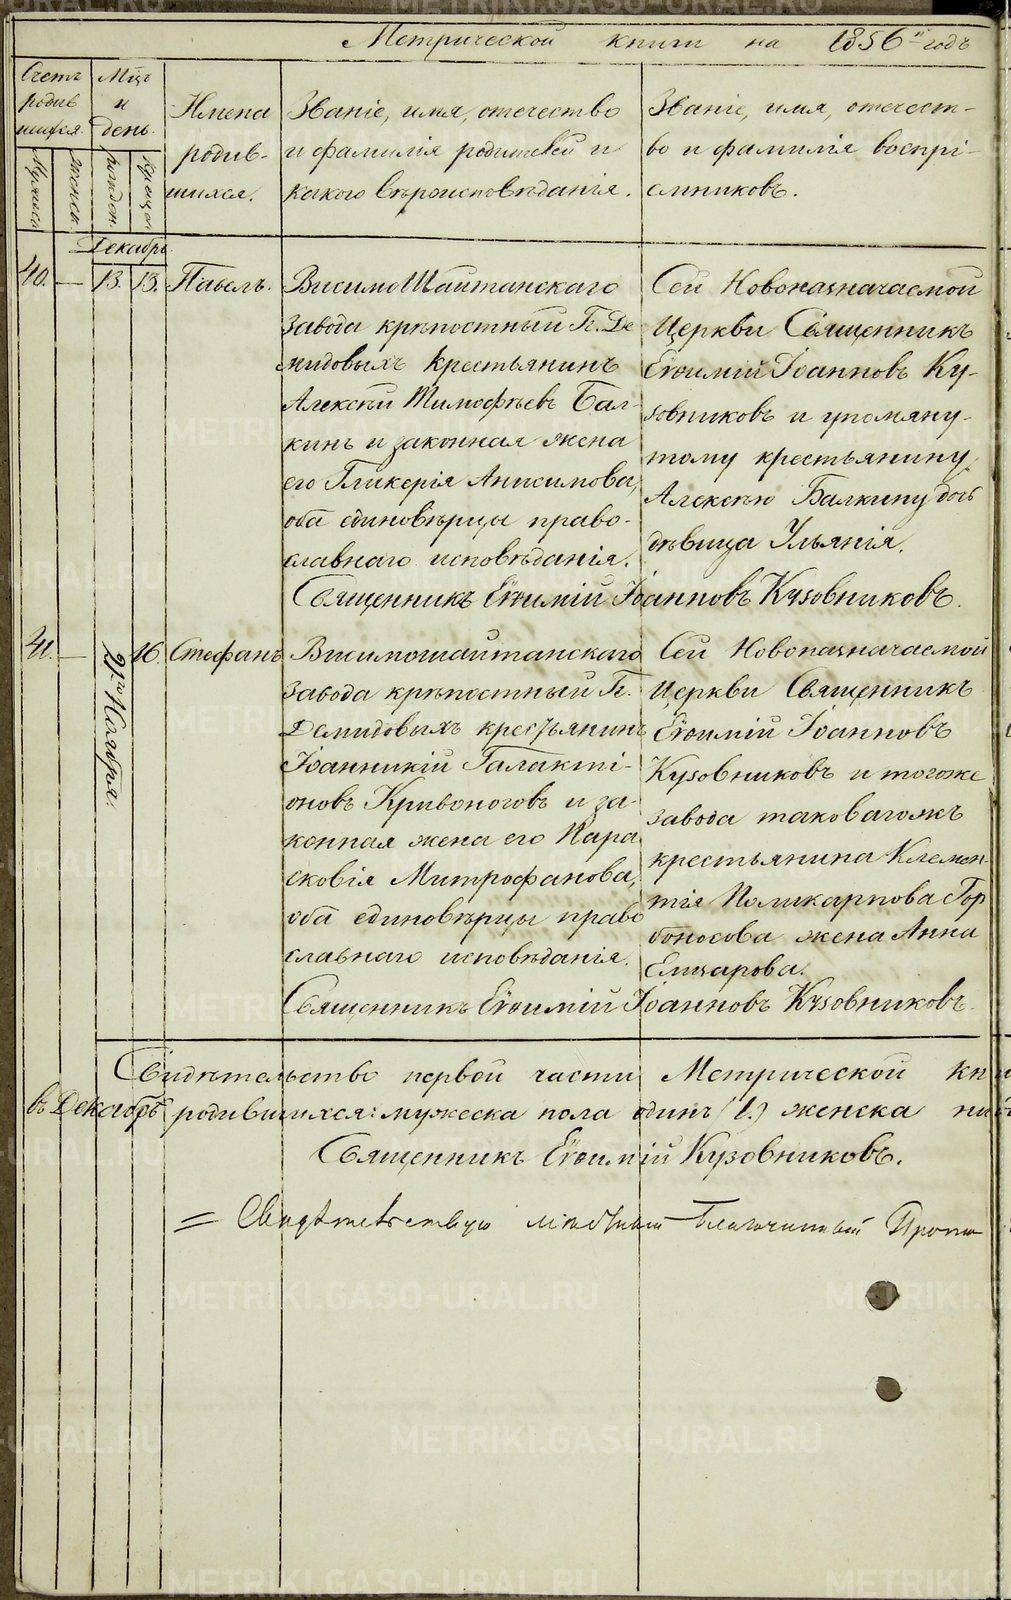 Метрической книги на 1856й годъ
Счетъ родив шихся.
Мужеска
Женск.
Мцъ и день.
рожден.
крещен.
Имена родив- шихся.
Званіе, имя, отечество
и фамилія родителей и
какого вѣроисповѣданія.
Званіе, имя, отечест-
во и фамилія воспрі-
емниковъ.
Декабрь.
40. — 13. 13. Павелъ.
ВисимоШайтанскаго
завода крѣпостный Гг. Де
мидовыхъ крестьянинъ
Алексѣй Тимофѣевъ Бал-
кинъ и законная жена
его Гликерія Анисимова,
оба единовѣрцы право-
славнаго исповѣданія.
Сей Новоназначаемой
Церкви Священникъ
Еѳимій Іоанновъ Ку-
зовниковъ и упомяну-
тому крестьянину
Алексѣю Балкину дочь
дѣвица Ульянія.
Священникъ Еѳимій Іоанновъ Кузовниковъ.
41. — 29го Ноября. 16. Стефанъ
Висимошайтанскаго
завода крѣпостный Гг.
Демидовыхъ крестьянинъ
Іоанникій Галакті-
оновъ Кривоноговъ и за-
конная жена его Пара
сковія Митрофанова,
оба единовѣрцы право
славнаго исповѣданія.
Сей Новоназначаемой
Церкви Священникъ
Еѳимій Іоанновъ
Кузовниковъ и тогоже
завода таковагожъ
крестьянина Клемен-
тія Поликарпова Гор
боносова жена Анна
Елизарова.
Священникъ Еѳимій Іоанновъ Кузовниковъ.
Свидѣтельство первой части Метрической кни
въ Декабрѣ родившихся: мужеска пола одинъ (1.) женска
Священникъ Еѳимій Кузовниковъ.
= Свидѣтельствую мѣстный Благочинный Прото
METRIKI.GASO-URAL.RU